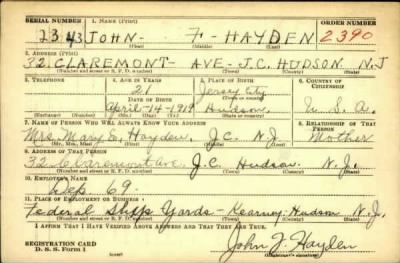 SERIAL NUMBER 1. NAME (Print) ORDER NUMBER
2343 JOHN - F - HAYDEN 2390
(First) (Middle) (Last)
2. ADDRESS (Print)
32 CLAREMONT - AVE - J.C. HUDSON N.J
(Number and street or R. F. D. number) (Town) (County) (State)
3. TELEPHONE 4. AGE IN YEARS 5. PLACE OF BIRTH 6. COUNTRY OF CITIZENSHIP
21 Jersey City
DATE OF BIRTH (Town or county)
April-14-1919 Hudson U.S.A.
(Exchange) (No.) (Mo.) (Day) (Yr.) (State or country)
7. NAME OF PERSON WHO WILL ALWAYS KNOW YOUR ADDRESS 8. RELATIONSHIP OF THAT PERSON
Mrs. Mary E. Hayden, J.C. N.J. Mother
(Mr., Mrs., Miss) (First) (Middle) (Last)
9. ADDRESS OF THAT PERSON
32 Claremont Ave. J.C. Hudson N.J.
(Number and street or R. F. D. number) (Town) (County) (State)
10. EMPLOYER'S NAME
Dep 69.
11. PLACE OF EMPLOYMENT OR BUSINESS
Federal Ship Yards - Kearney Hudson N.J.
(Number and street or R. F. D. number) (Town) (County) (State)
I AFFIRM THAT I HAVE VERIFIED ABOVE ANSWERS AND THAT THEY ARE TRUE.
REGISTRATION CARD
D. S. S. Form 1 John F. Hayden